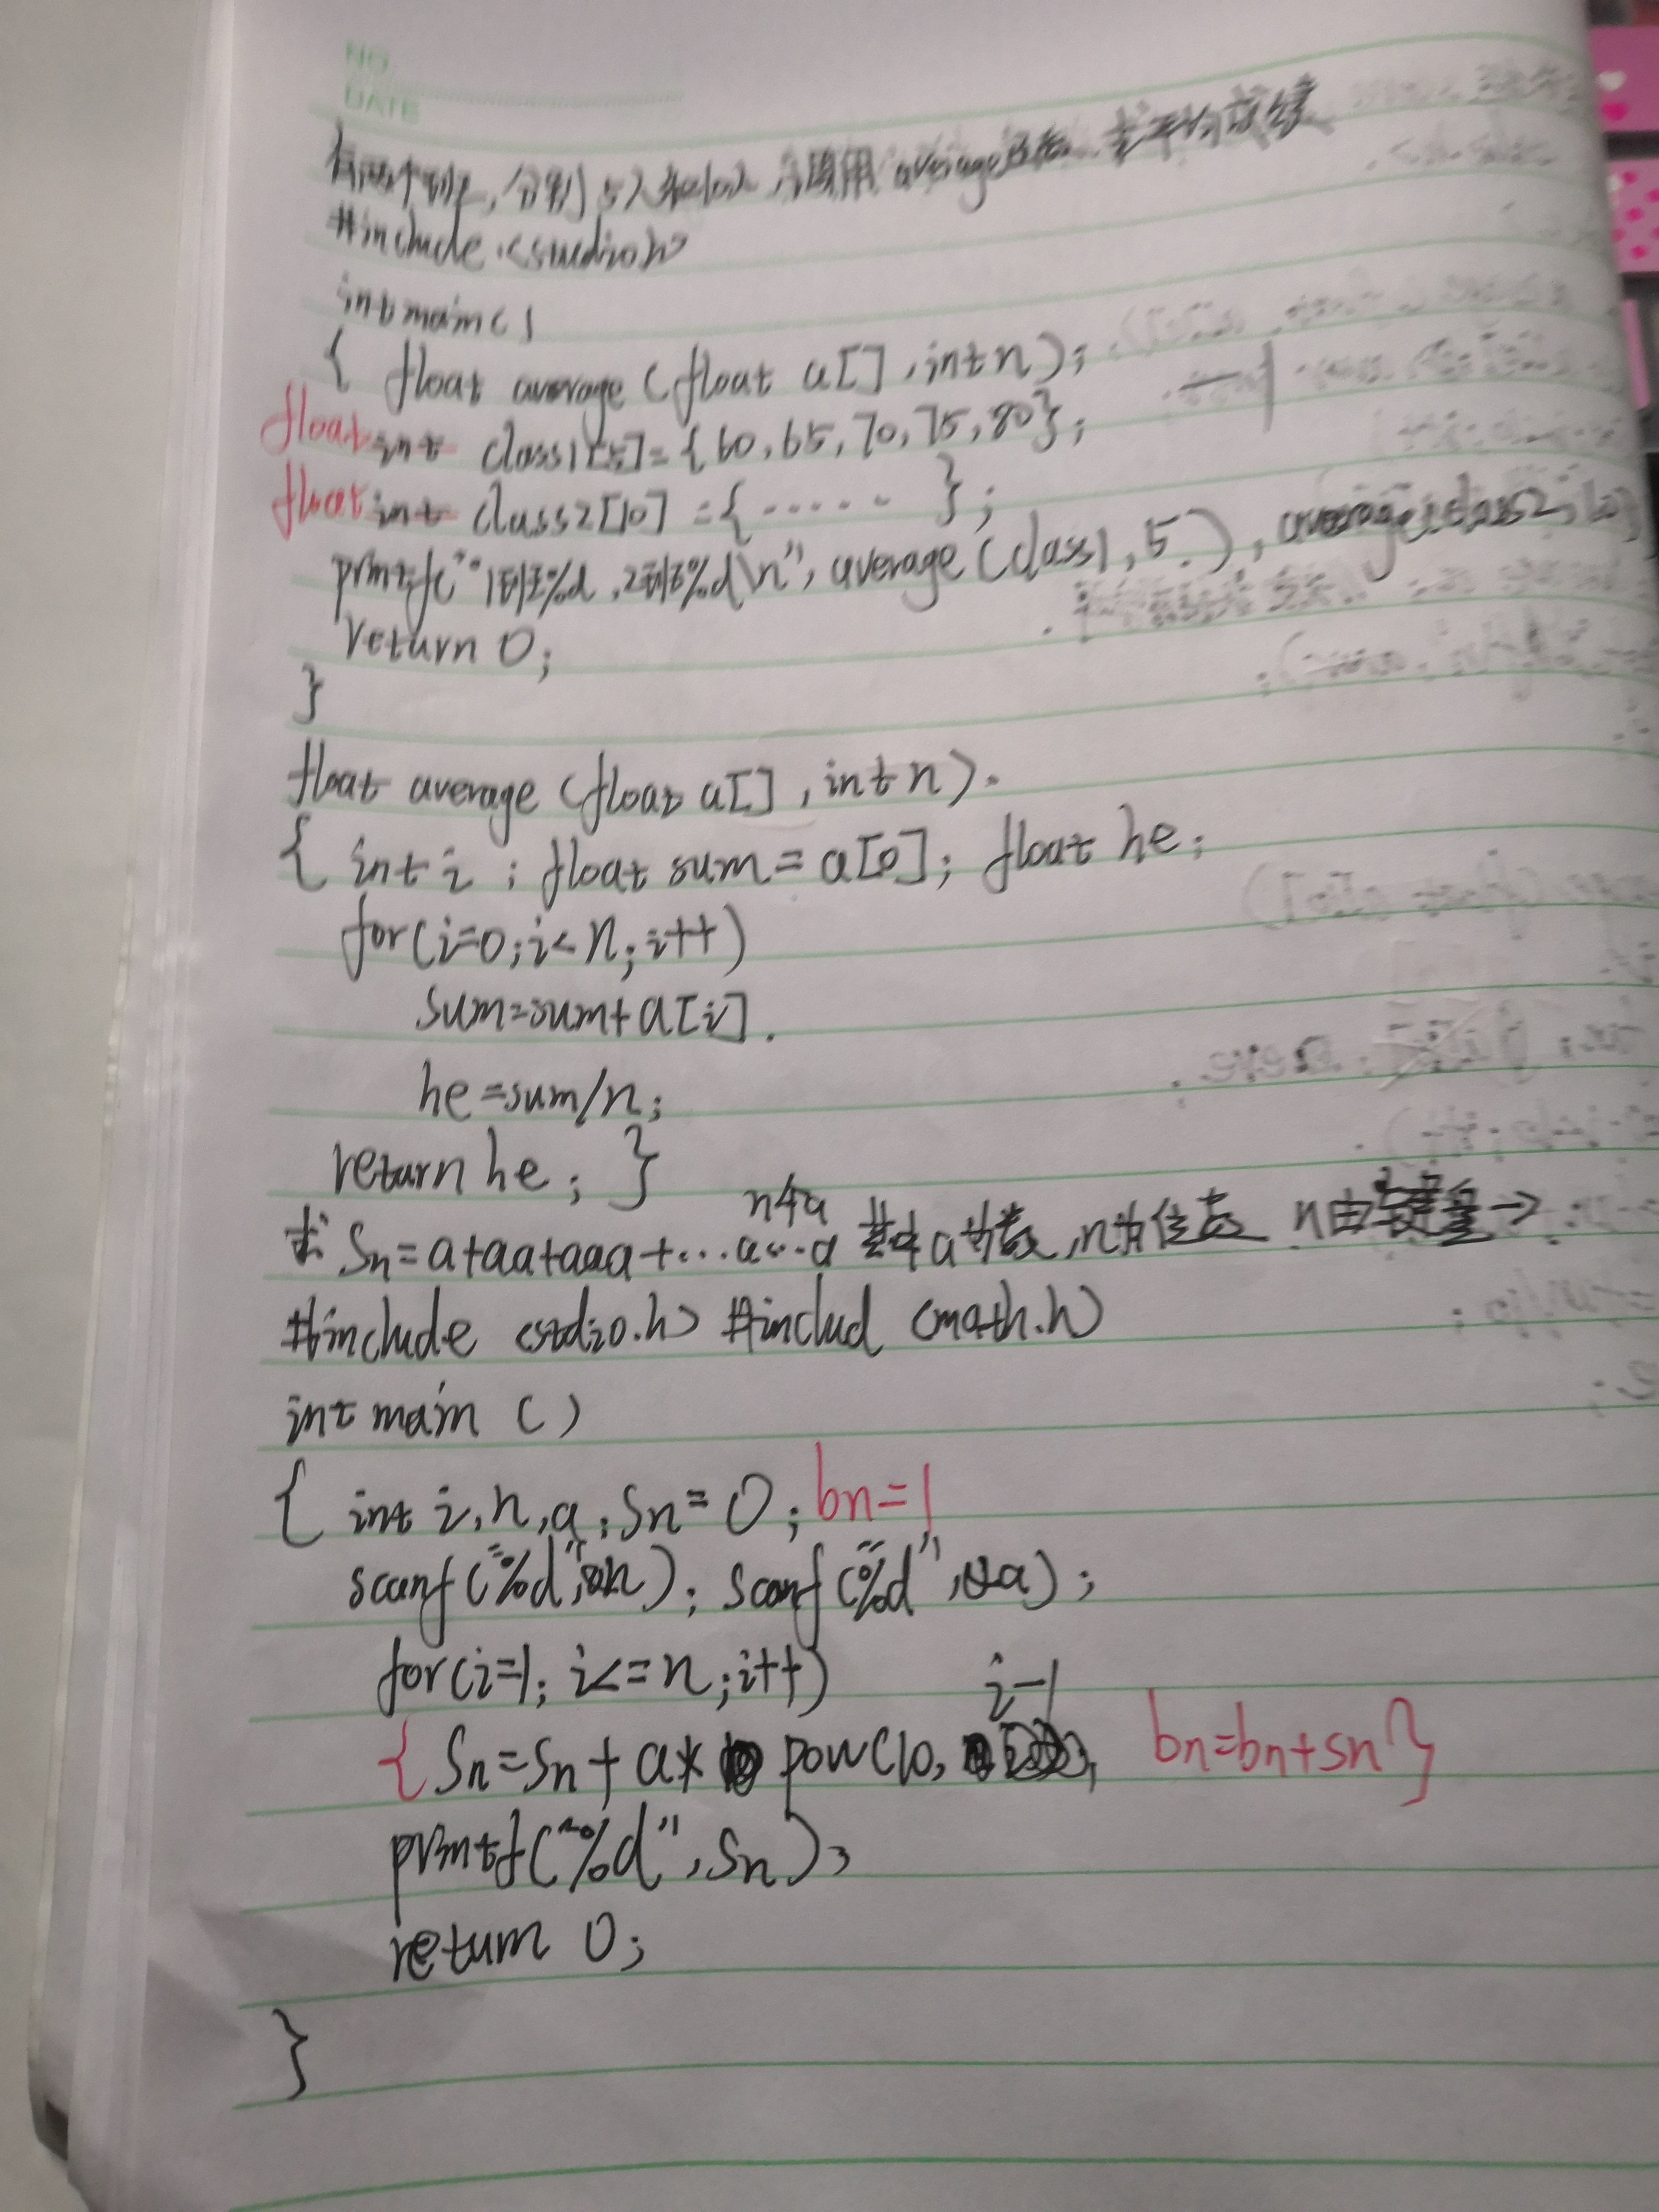 NO.
DATE
有两个班,分别5人和10人,调用average函数,求平均成绩
#include <stdio.h>
int main()
{ float average (float a[], int n);
float int class1[5]={60,65,70,75,80};
float int class2[10]={······};
printf("1班%d,2班%d\n", average(class1,5), average(class2,10)
return 0;
}
float average (float a[], int n).
{ int i; float sum=a[0]; float he;
for(i=0;i<n;i++)
sum=sum+a[i].
he=sum/n;
return he; }
n个a
求 Sn=a+aa+aaa+...a...a 其中a为数,n为位数 n由键盘→
#include <stdio.h> #includ <math.h>
int main ()
{ int i,n,a,Sn=0; bn=1
scanf("%d",&n); scanf("%d",&a);
for(i=1; i<=n;i++)
i-1
{ Sn=Sn+a* pow(10, bn=bn+sn }
printf("%d",Sn);
return 0;
}